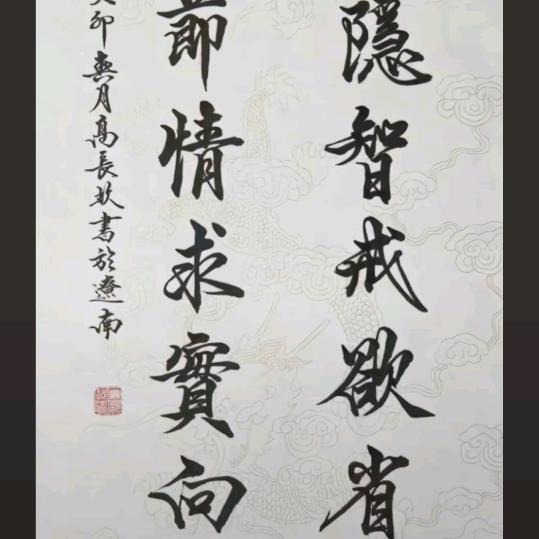 隱智戒欲省
節情求實向
癸卯月高長書於遼南